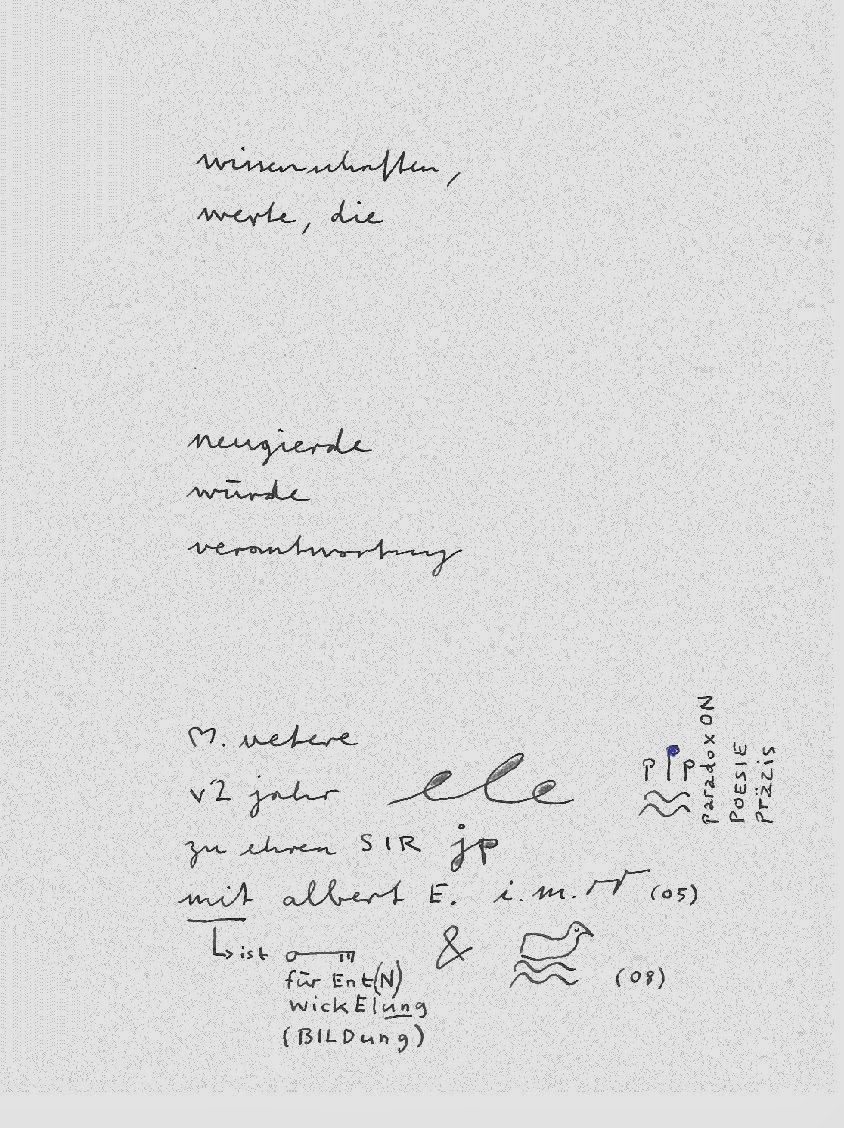 wissenschaften,
werte, die
neugierde
würde
verantwortung
M. vetere
v2 jahr ele
zu ehren SIR jp
mit albert E. i.m. (05)
ist
&
(08)
für Ent(N)
wickElung
(BILDung)
pip
paradoxON
POESIE
PRäzis